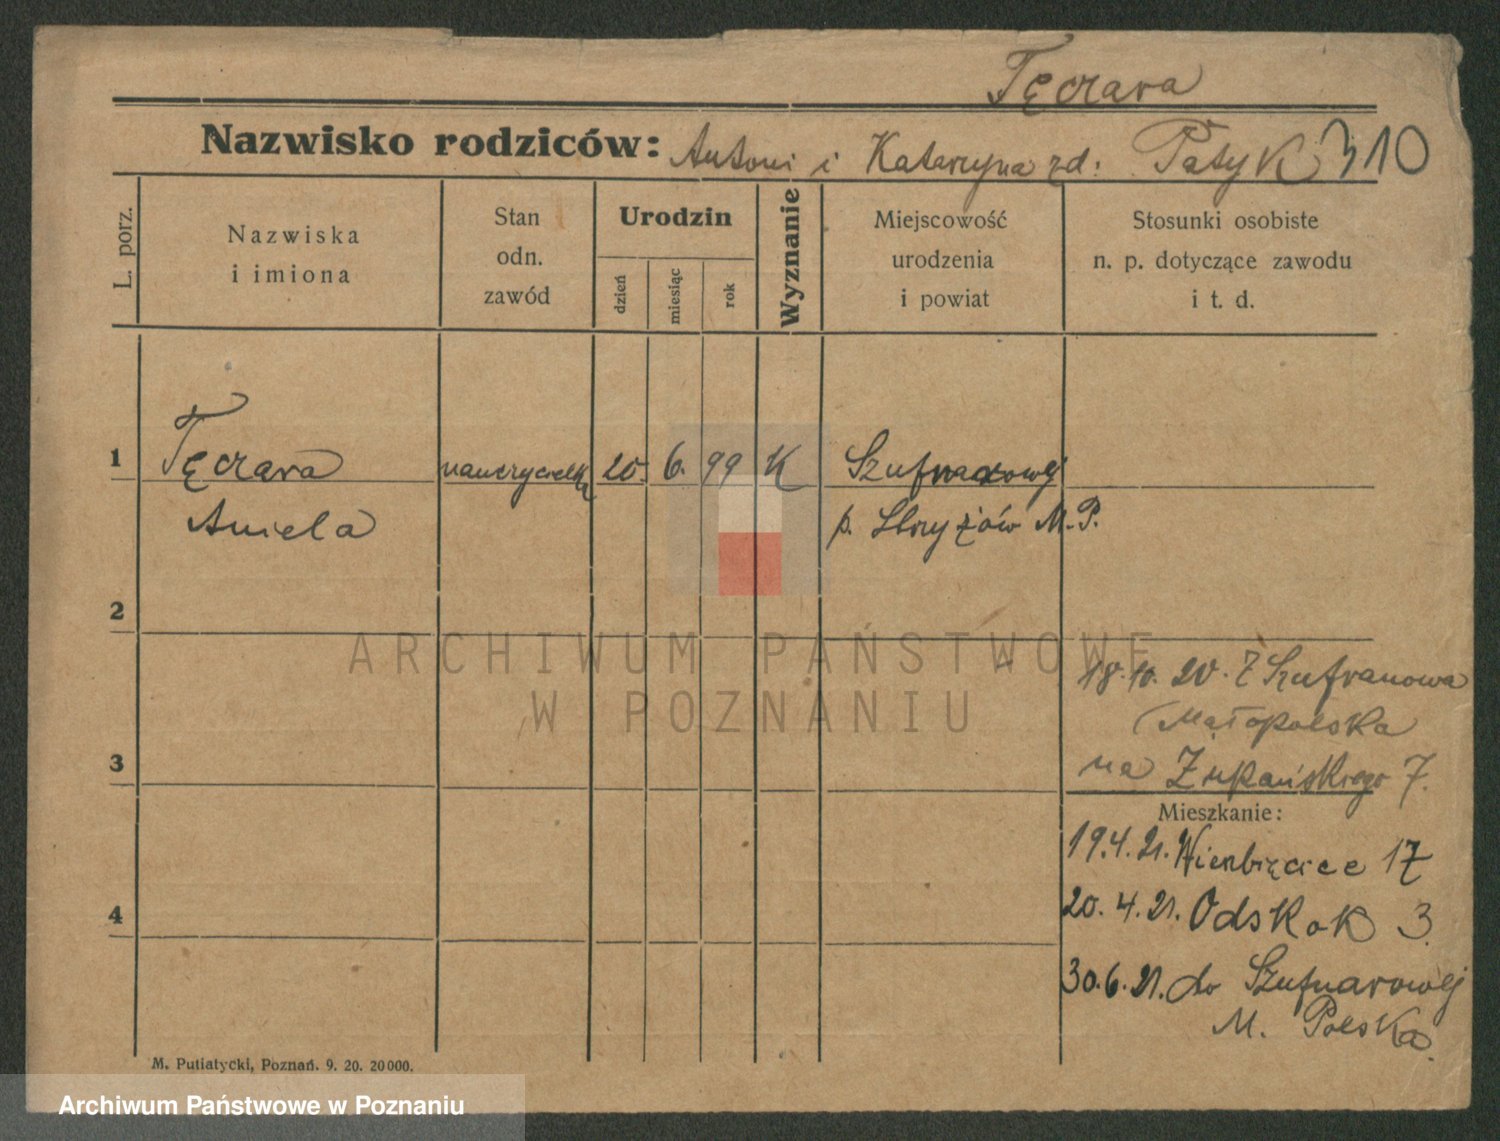 Tęczara
Nazwisko rodziców: Antoni i Katarzyna zd: Patyk 310
L. porz.
Nazwiska
i imiona
Stan
odn.
zawód
Urodzin
dzień
miesiąc
rok
Wyznanie
Miejscowość
urodzenia
i powiat
Stosunki osobiste
n. p. dotyczące zawodu
i t. d.
1 Tęczara nauczycielka 20. 6. 99 K Szufnarowej
Aniela p. Strzyżów M.P.
2
ARCHIWUM PAŃSTWOWE
W POZNANIU
18.10.20. Z Szufnarowa
(Małopolska
3
na Żupańskiego 7.
Mieszkanie:
19.4.21. Wierzbięcice 17
4
20.4.21. Odskok 3.
30.6.21. do Szufnarowej
M. Polska.
M. Putiatycki, Poznań. 9. 20. 20000.
Archiwum Państwowe w Poznaniu